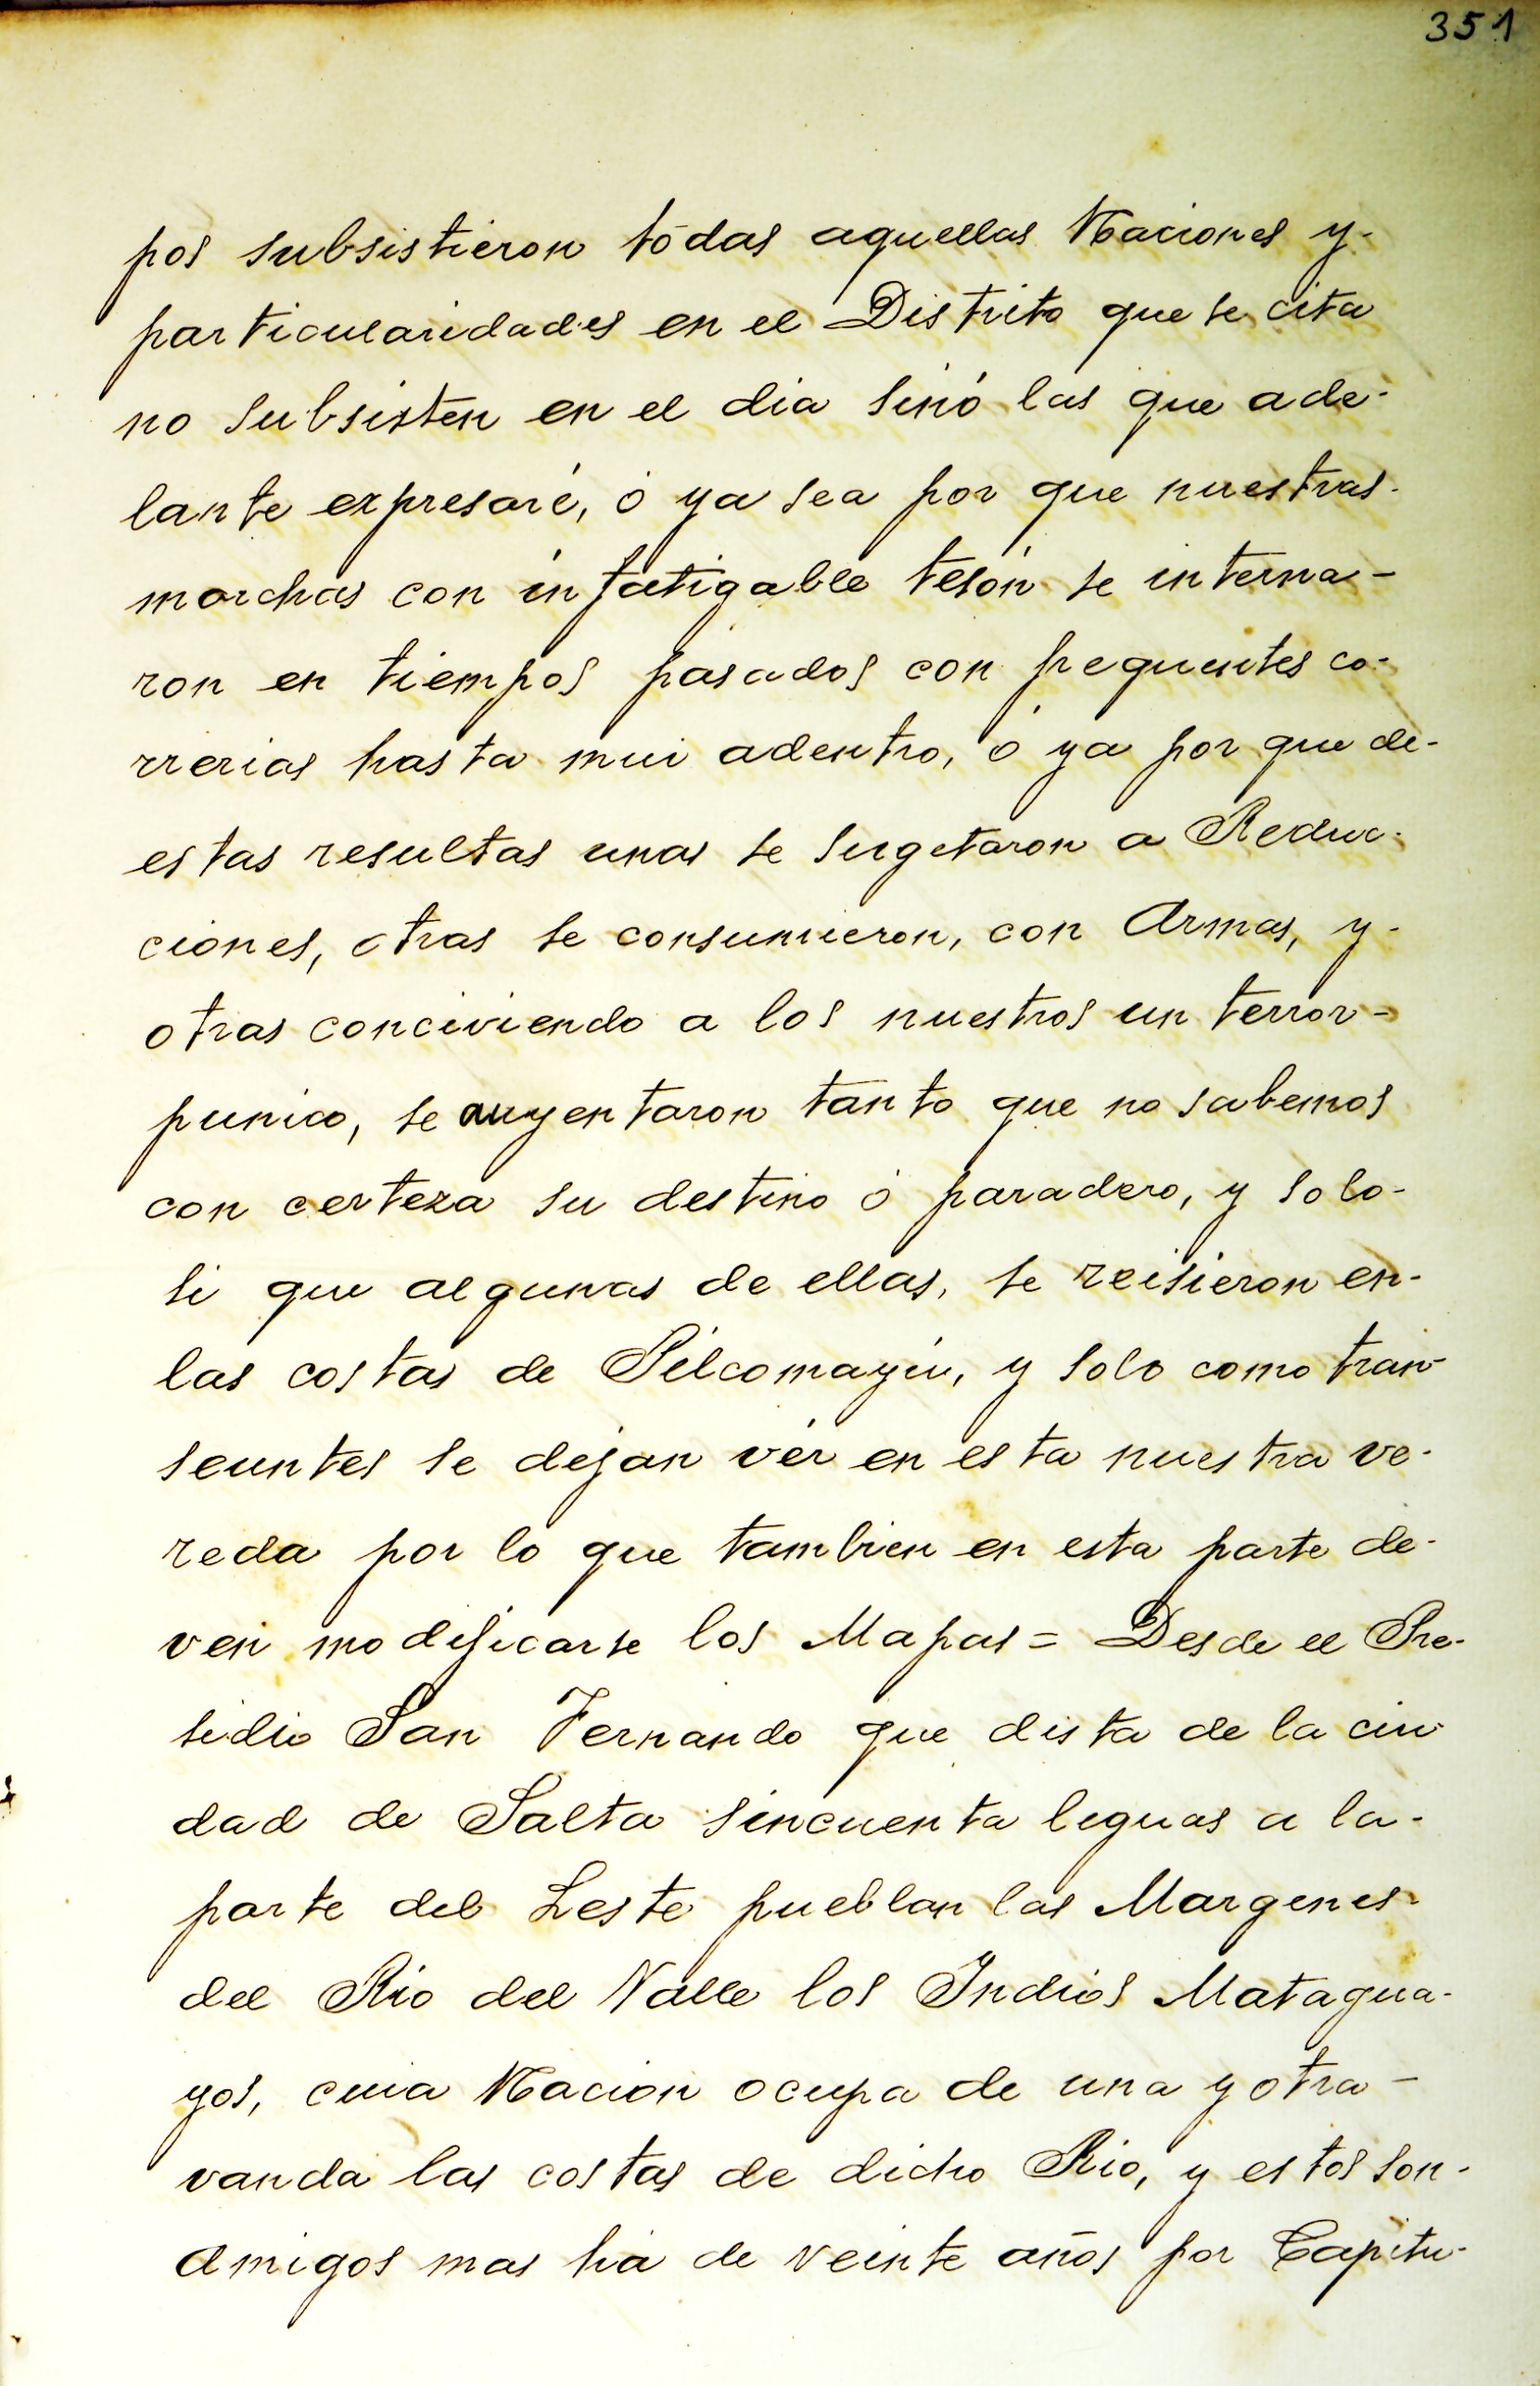 351
pos subsistieron tōdas aquellas Naciones y-
particularidades en el Distrito que se cita
no subsisten en el dia sinó las que ade-
lante expresaré, ó ya sea por que nuestras-
marchas con infatigable tesón se interna-
ron en tiempos pasados con frequentes co-
rrerias hasta mui adentro, ó ya por que de-
estas resultas unas se sugetaron a Reduc-
ciones, otras se consumieron, con Armas, y-
otras conciviendo a los nuestros un terror-
punico, se auyentaron tanto que no sabemos
con certeza su destino ó paradero, y solo-
si que algunas de ellas, se reisieron en-
las costas de Pilcomayu, y solo como tran-
seuntes se dejan vér en esta nuestra ve-
reda por lo que tambien en esta parte de-
ven modificarse los Mapas = Desde el Pre-
sidio San Fernando que dista de la ciu
dad de Salta sincuenta leguas a la-
parte del Leste pueblan las Margenes-
del Rio del Valle los Indios Matagua-
yos, cuia Nacion ocupa de una y otra-
vanda las costas de dicho Rio, y estos son-
amigos mas há de veinte años por Capitu-